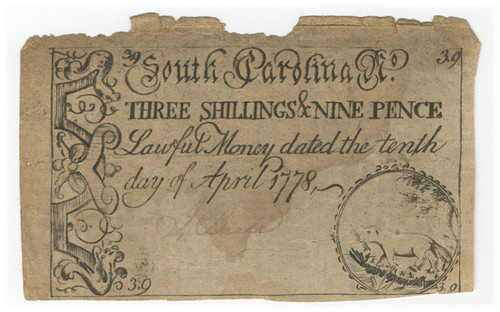 3.9 South Carolina No. 3.9
THREE SHILLINGS & NINE PENCE
Lawful Money dated the tenth
day of April 1778,
3.9 3.9